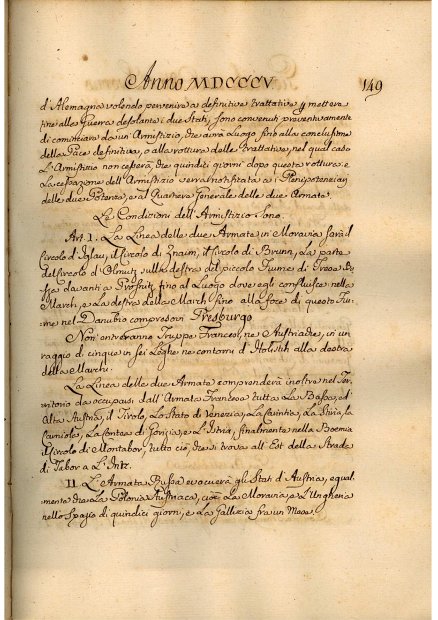 Anno MDCCCV 149
d'Alemagna volendo pervenire a definitive trattative p mettere
fine alla Guerra desolante i due Stati, sono convenuti preventivamente
di cominciare da un'Armistizio, che avrà luogo sino alla conclusione
della Pace definitiva, o alla rottura delle trattative, nel qual caso
L'Armistizio non cesserà, che quindici giorni dopo questa rottura, e
La cessazione dell'Armistizio verrà notificata a i Plenipotenziari
delle due Potenze, e al Quartiere Generale delle due Armate.
Le Condizioni dell'Armistizio sono.
Art. I. La Linea delle due Armate in Moravia sarà il
Circolo d'Iglau, il Circolo di Znaim, il Circolo di Brunn, La parte
del Circolo d'Olmutz sulla destra del piccolo Fiume di
davanti a fino al Luogo dove egli confluisce nella
March, e La destra della March sino alla foce di questo Fiu-
me nel Danubio compresovi Presburgo
Non entreranno Truppe Francesi, ne Austriache, in un
raggio di cinque in sei Leghe ne contorni d' alla destra
della March.
La Linea delle due Armate comprenderà inoltre nel Ter-
ritorio da occuparsi dall'Armata Francese tutta La Bassa, ed
Alta Austria, il Tirolo, Lo Stato di Venezia, La Carintia, La Stiria, la
Carniola, La Contea di Gorizia, e L'Istria, finalmente nella Boemia
il Circolo di Montabor, tutto ciò, che si trova all'Est della Strada
di Tabor a Lintz.
II. L'Armata Russa evacuerà gli Stati d'Austria, equal-
mente che La Polonia Austriaca, cioè La Moravia, e L'Ungheria
nello spazio di quindici giorni, e La Gallizia fra un Mese.